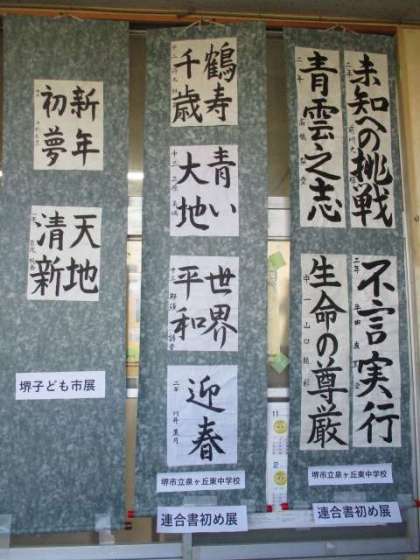 新年
初夢
天地
清新
堺子ども市展
鶴寿
千歳
青い
大地
世界
平和
迎春
二年
堺市立泉ヶ丘東中学校
連合書初め展
未知への挑戦
二年
青雲之志
不言実行
二年
生命の尊厳
堺市立泉ヶ丘東中学校
連合書初め展